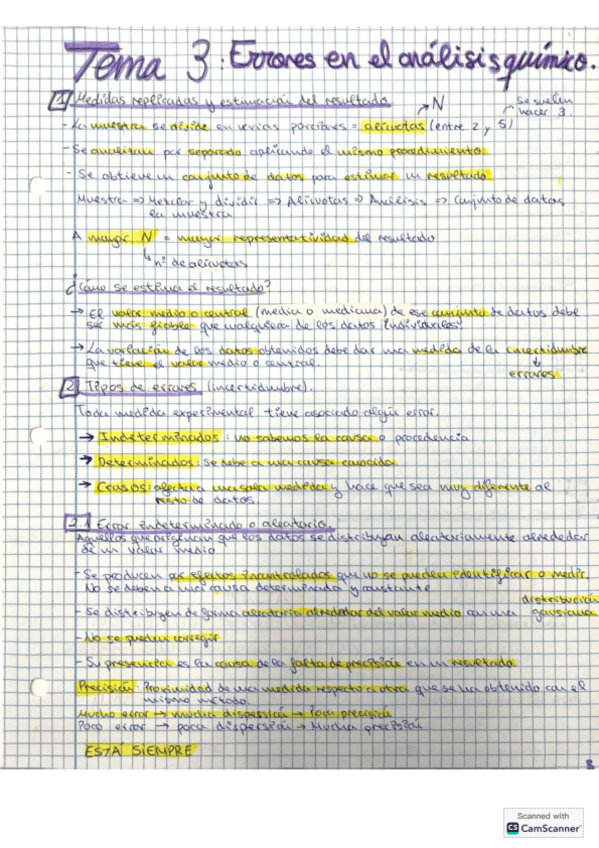 Tema 3: Errores en el análisis químico.
1 Medidas replicadas y estimación del resultado
N
se suelen
hacer 3.
- La muestra se divide en varias porciones = alicuotas (entre 2 y 5)
- Se analizan por separado aplicando el mismo procedimiento
- Se obtiene un conjunto de datos para estimar un resultado
Muestra => Mezclar y dividir => Alicuotas => Análisis => Conjunto de datos
la muestra
A mayor N = mayor representatividad del resultado
nº de alicuotas
¿Cómo se estima el resultado?
→ El valor medio o central (media o mediana) de ese conjunto de datos debe
ser más fiable que cualquiera de los datos individuales
→ La variación de los datos obtenidos debe dar una medida de la incertidumbre
que tiene el valor medio o central.
errores
2 Tipos de errores (incertidumbre).
Toda medida experimental tiene asociado algún error.
→ Indeterminados: no sabemos la causa o procedencia
→ Determinados: se debe a una causa conocida
→ Crasos: afecta a una sola medida y hace que sea muy diferente al
resto de datos
2.1 Error indeterminado o aleatorio.
Aquellos que originan que los datos se distribuyan aleatoriamente alrededor
de un valor medio
- Se producen por efectos incontrolados que no se pueden identificar o medir.
No se deben a una causa determinada y constante
distribución
- Se distribuyen de forma aleatoria alrededor del valor medio con una gaussiana
- No se pueden corregir
- Su presencia es la causa de la falta de precisión en un resultado
Precisión: Proximidad de una medida respecto a otra que se ha obtenido con el
mismo método.
Mucho error → mucha dispersión → Poca precisión
Poco error → poca dispersión → Mucha precisión
ESTA SIEMPRE
Scanned with
CS CamScanner